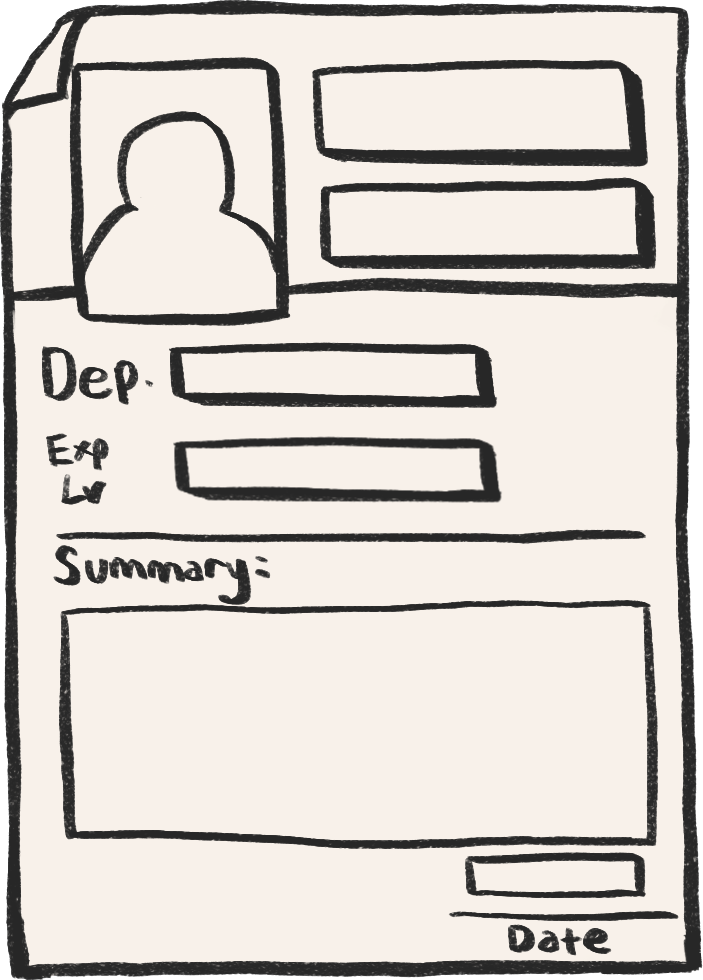 Dep.
Exp
Lv
Summary:
Date